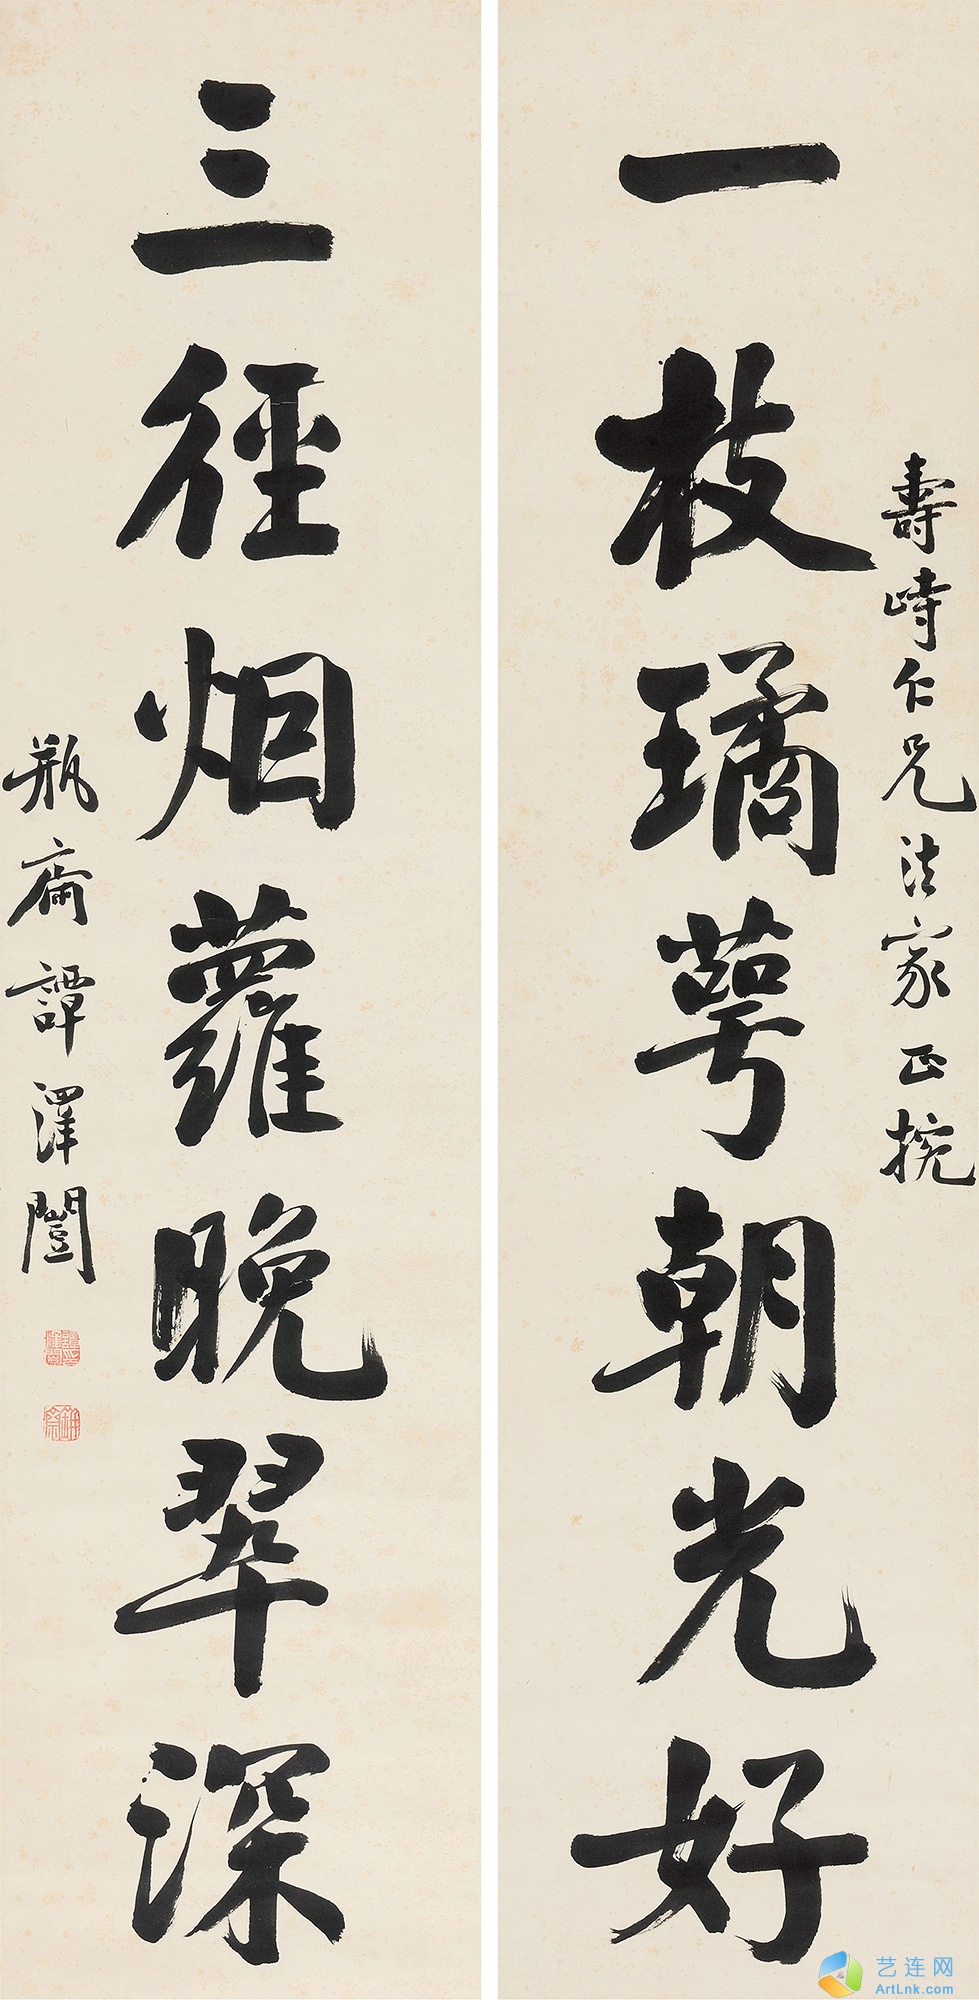 壽峙仁兄法家正捥
一枝璚萼朝光好
三徑烟蘿晚翠深
瓶齋譚澤闓
艺连网
ArtLnk.com